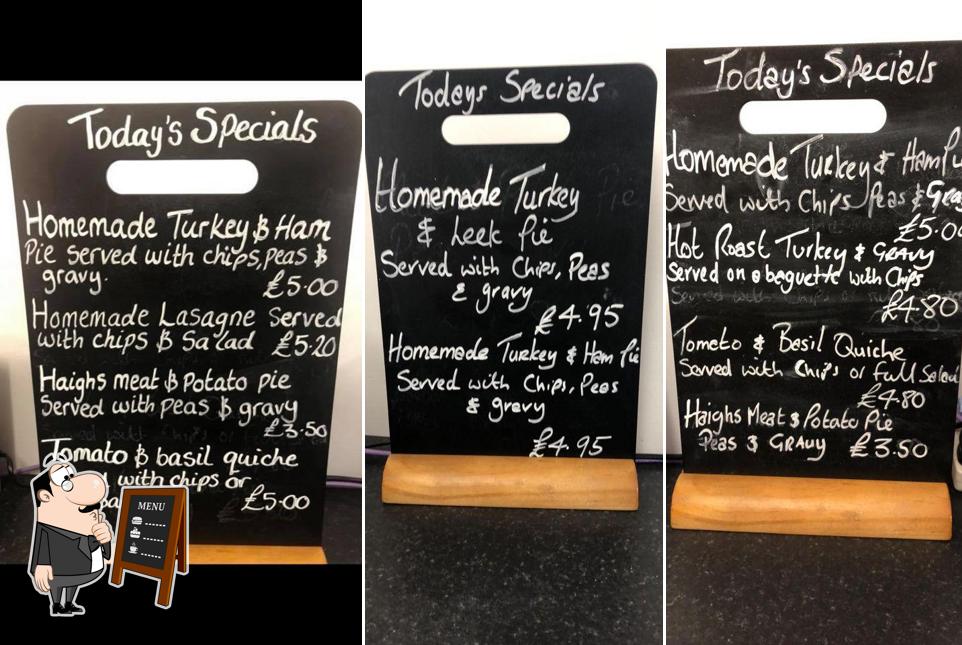 Today's Specials
Homemade Turkey & Ham
Pie Served with chips, peas &
gravy.
£5.00
Homemade Lasagne Served
with chips & Salad £5.20
Haighs meat & Potato pie
Served with peas & gravy
£3.50
Tomato & basil quiche
with chips or
£5.00
MENU
Todays Specials
Homemade Turkey
& Leek Pie
Served with Chips, Peas
& gravy
£4.95
Homemade Turkey & Ham Pie
Served with Chips, Peas
& gravy
£4.95
Today's Specials
Homemade Turkey & Ham
Served with Chips Peas &
£5.0
Hot Roast Turkey & GRAVY
Served on a baguette with Chips
£4.80
Tomato & Basil Quiche
Served with Chips or full Salad
£4.80
Haighs Meat & Potato Pie
Peas & GRAVY £3.50